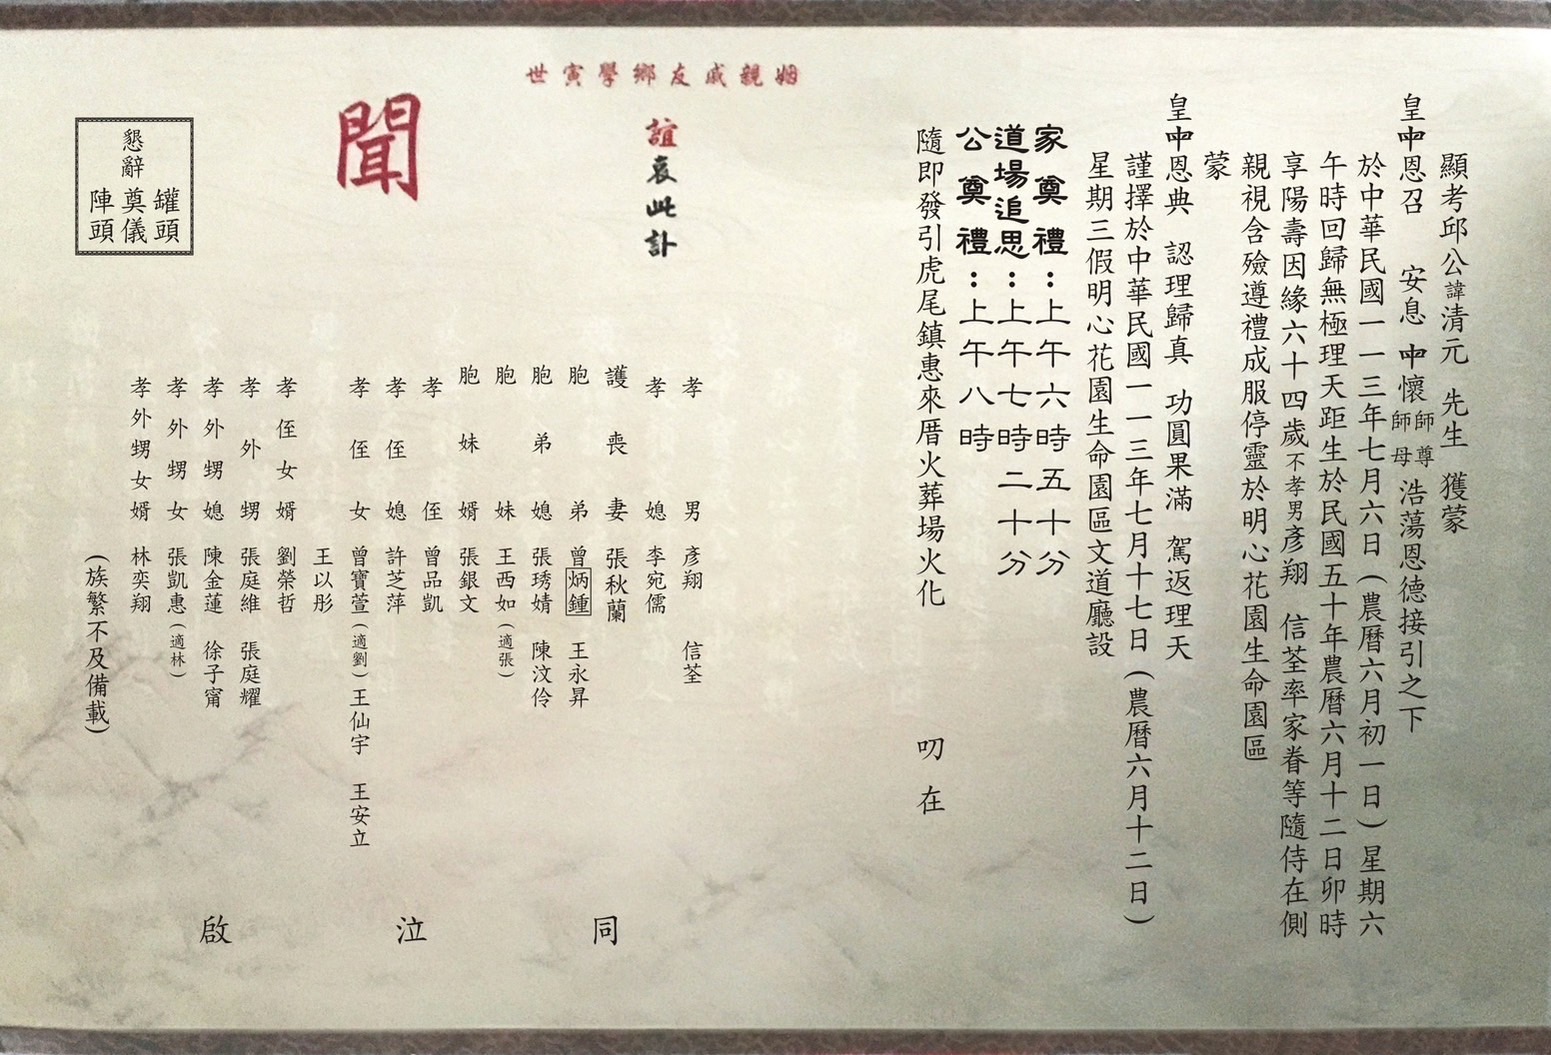 顯考邱公諱清元 先生 獲蒙
皇𠁩恩召 安息 𠁩懷師尊師母浩蕩恩德接引之下
於中華民國一一三年七月六日(農曆六月初一日)星期六
午時回歸無極理天距生於民國五十年農曆六月十二日卯時
享陽壽因緣六十四歲不孝男彥翔 信荃率家眷等隨侍在側
親視含殮遵禮成服停靈於明心花園生命園區
蒙
皇𠁩恩典 認理歸真 功圓果滿 駕返理天
謹擇於中華民國一一三年七月十七日(農曆六月十二日)
星期三假明心花園生命園區文道廳設
家奠禮:上午六時五十分
道場追思:上午七時二十分
公奠禮:上午八時
隨即發引虎尾鎮惠來厝火葬場火化 叨在
姻親戚友鄉學寅世
誼哀此訃
聞
孝男 彥翔 信荃
孝媳 李宛儒
護喪妻 張秋蘭
胞弟 曾炳鍾 王永昇
胞弟媳 張琇婧 陳汶伶
胞妹 王西如(適張)
胞妹婿 張銀文
孝侄 曾品凱
孝侄媳 許芝萍
孝侄女 曾寶萱(適劉)王仙宇 王安立
王以彤
孝侄女婿 劉榮哲
孝外甥 張庭維 張庭耀
孝外甥媳 陳金蓮 徐子甯
孝外甥女 張凱惠(適林)
孝外甥女婿 林奕翔
(族繁不及備載)
同泣啟
懇辭
罐頭
奠儀
陣頭